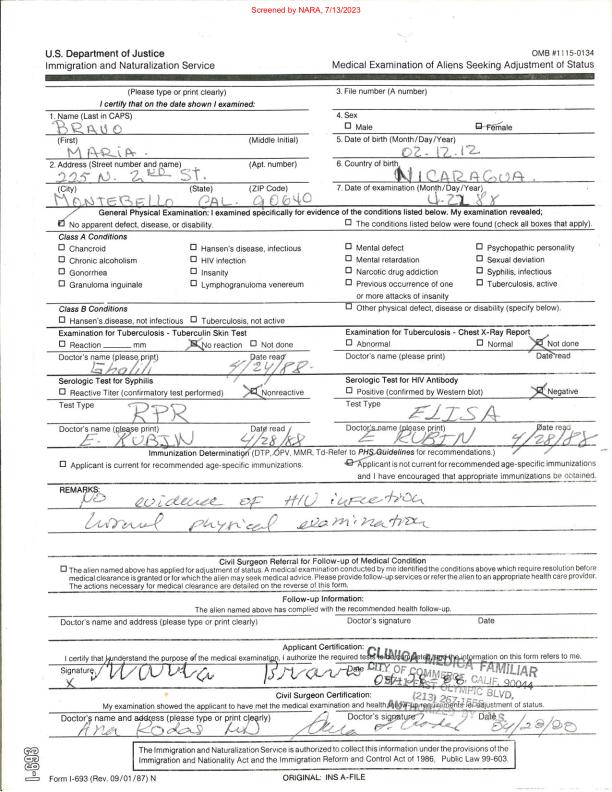 Screened by NARA, 7/13/2023
U.S. Department of Justice
OMB #1115-0134
Immigration and Naturalization Service
Medical Examination of Aliens Seeking Adjustment of Status
(Please type or print clearly)
I certify that on the date shown I examined:
3. File number (A number)
1. Name (Last in CAPS)
BRAVO
4. Sex
☐ Male
☒ Female
(First)
(Middle Initial)
MARIA.
5. Date of birth (Month/Day/Year)
02.12.12
2. Address (Street number and name)
(Apt. number)
225 N. 2ND St.
6. Country of birth
NICARAGUA.
(City)
(State)
(ZIP Code)
MONTEBELLO CAL. 90640
7. Date of examination (Month/Day/Year)
4-22 88
General Physical Examination: I examined specifically for evidence of the conditions listed below. My examination revealed;
☒ No apparent defect, disease, or disability.
☐ The conditions listed below were found (check all boxes that apply).
Class A Conditions
☐ Chancroid
☐ Hansen's disease, infectious
☐ Mental defect
☐ Psychopathic personality
☐ Chronic alcoholism
☐ HIV infection
☐ Mental retardation
☐ Sexual deviation
☐ Gonorrhea
☐ Insanity
☐ Narcotic drug addiction
☐ Syphilis, infectious
☐ Granuloma inguinale
☐ Lymphogranuloma venereum
☐ Previous occurrence of one
or more attacks of insanity
☐ Tuberculosis, active
Class B Conditions
☐ Hansen's disease, not infectious
☐ Tuberculosis, not active
☐ Other physical defect, disease or disability (specify below).
Examination for Tuberculosis - Tuberculin Skin Test
☐ Reaction ____ mm
☒ No reaction
☐ Not done
Examination for Tuberculosis - Chest X-Ray Report
☐ Abnormal
☐ Normal
☒ Not done
Doctor's name (please print)
Date read
4/24/88.
Doctor's name (please print)
Date read
Serologic Test for Syphilis
☐ Reactive Titer (confirmatory test performed)
☒ Nonreactive
Serologic Test for HIV Antibody
☐ Positive (confirmed by Western blot)
☒ Negative
Test Type
RPR
Test Type
ELISA
Doctor's name (please print)
Date read
E. RUBIN 4/28/88
Doctor's name (please print)
Date read
E RUBIN 4/28/88
Immunization Determination (DTP, OPV, MMR, Td-Refer to PHS Guidelines for recommendations.)
☐ Applicant is current for recommended age-specific immunizations.
☒ Applicant is not current for recommended age-specific immunizations
and I have encouraged that appropriate immunizations be obtained.
REMARKS:
No evidence of HIV infection
Normal physical examination
Civil Surgeon Referral for Follow-up of Medical Condition
☐ The alien named above has applied for adjustment of status. A medical examination conducted by me identified the conditions above which require resolution before
medical clearance is granted or for which the alien may seek medical advice. Please provide follow-up services or refer the alien to an appropriate health care provider.
The actions necessary for medical clearance are detailed on the reverse of this form.
Follow-up Information:
The alien named above has complied with the recommended health follow-up.
Doctor's name and address (please type or print clearly)
Doctor's signature
Date
Applicant Certification:
I certify that I understand the purpose of the medical examination, I authorize the required tests to be completed, and the information on this form refers to me.
Signature
X Maria Bravo
Date
CLINICA MEDICA FAMILIAR
CITY OF COMMERCE, CALIF. 90044
OLYMPIC BLVD,
(213)
Civil Surgeon Certification:
My examination showed the applicant to have met the medical examination and health follow-up requirements for adjustment of status.
Doctor's name and address (please type or print clearly)
Doctor's signature
Date
Ana Rodas MD
04/28/88
The Immigration and Naturalization Service is authorized to collect this information under the provisions of the
Immigration and Nationality Act and the Immigration Reform and Control Act of 1986, Public Law 99-603.
I-693
Form I-693 (Rev. 09/01/87) N
ORIGINAL: INS A-FILE